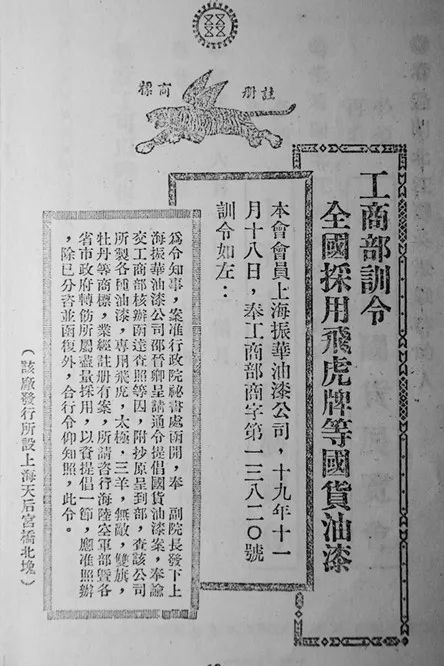 註册商標
工商部訓令
全國採用飛虎牌等國貨油漆
本會會員上海振華油漆公司，十九年十一
月十八日，奉工商部商字第一三八二〇號
訓令如左：
爲令知事，案准行政院秘書處函開，奉　副院長發下上
海振華油漆公司邵晉卿呈請通令提倡國貨油漆案，奉諭
交工商部核辦函達查照等因，附抄原呈到部，查該公司
所製各種油漆，專用飛虎，太極，三羊，無敵，雙旗，
牡丹等商標，業經註册有案，所請咨行海陸空軍部暨各
省市政府轉飭所屬盡量採用，以資提倡一節，應准照辦
，除已分咨並函復外，合行令仰知照，此令。
（該廠發行所設上海天后宮橋北堍）